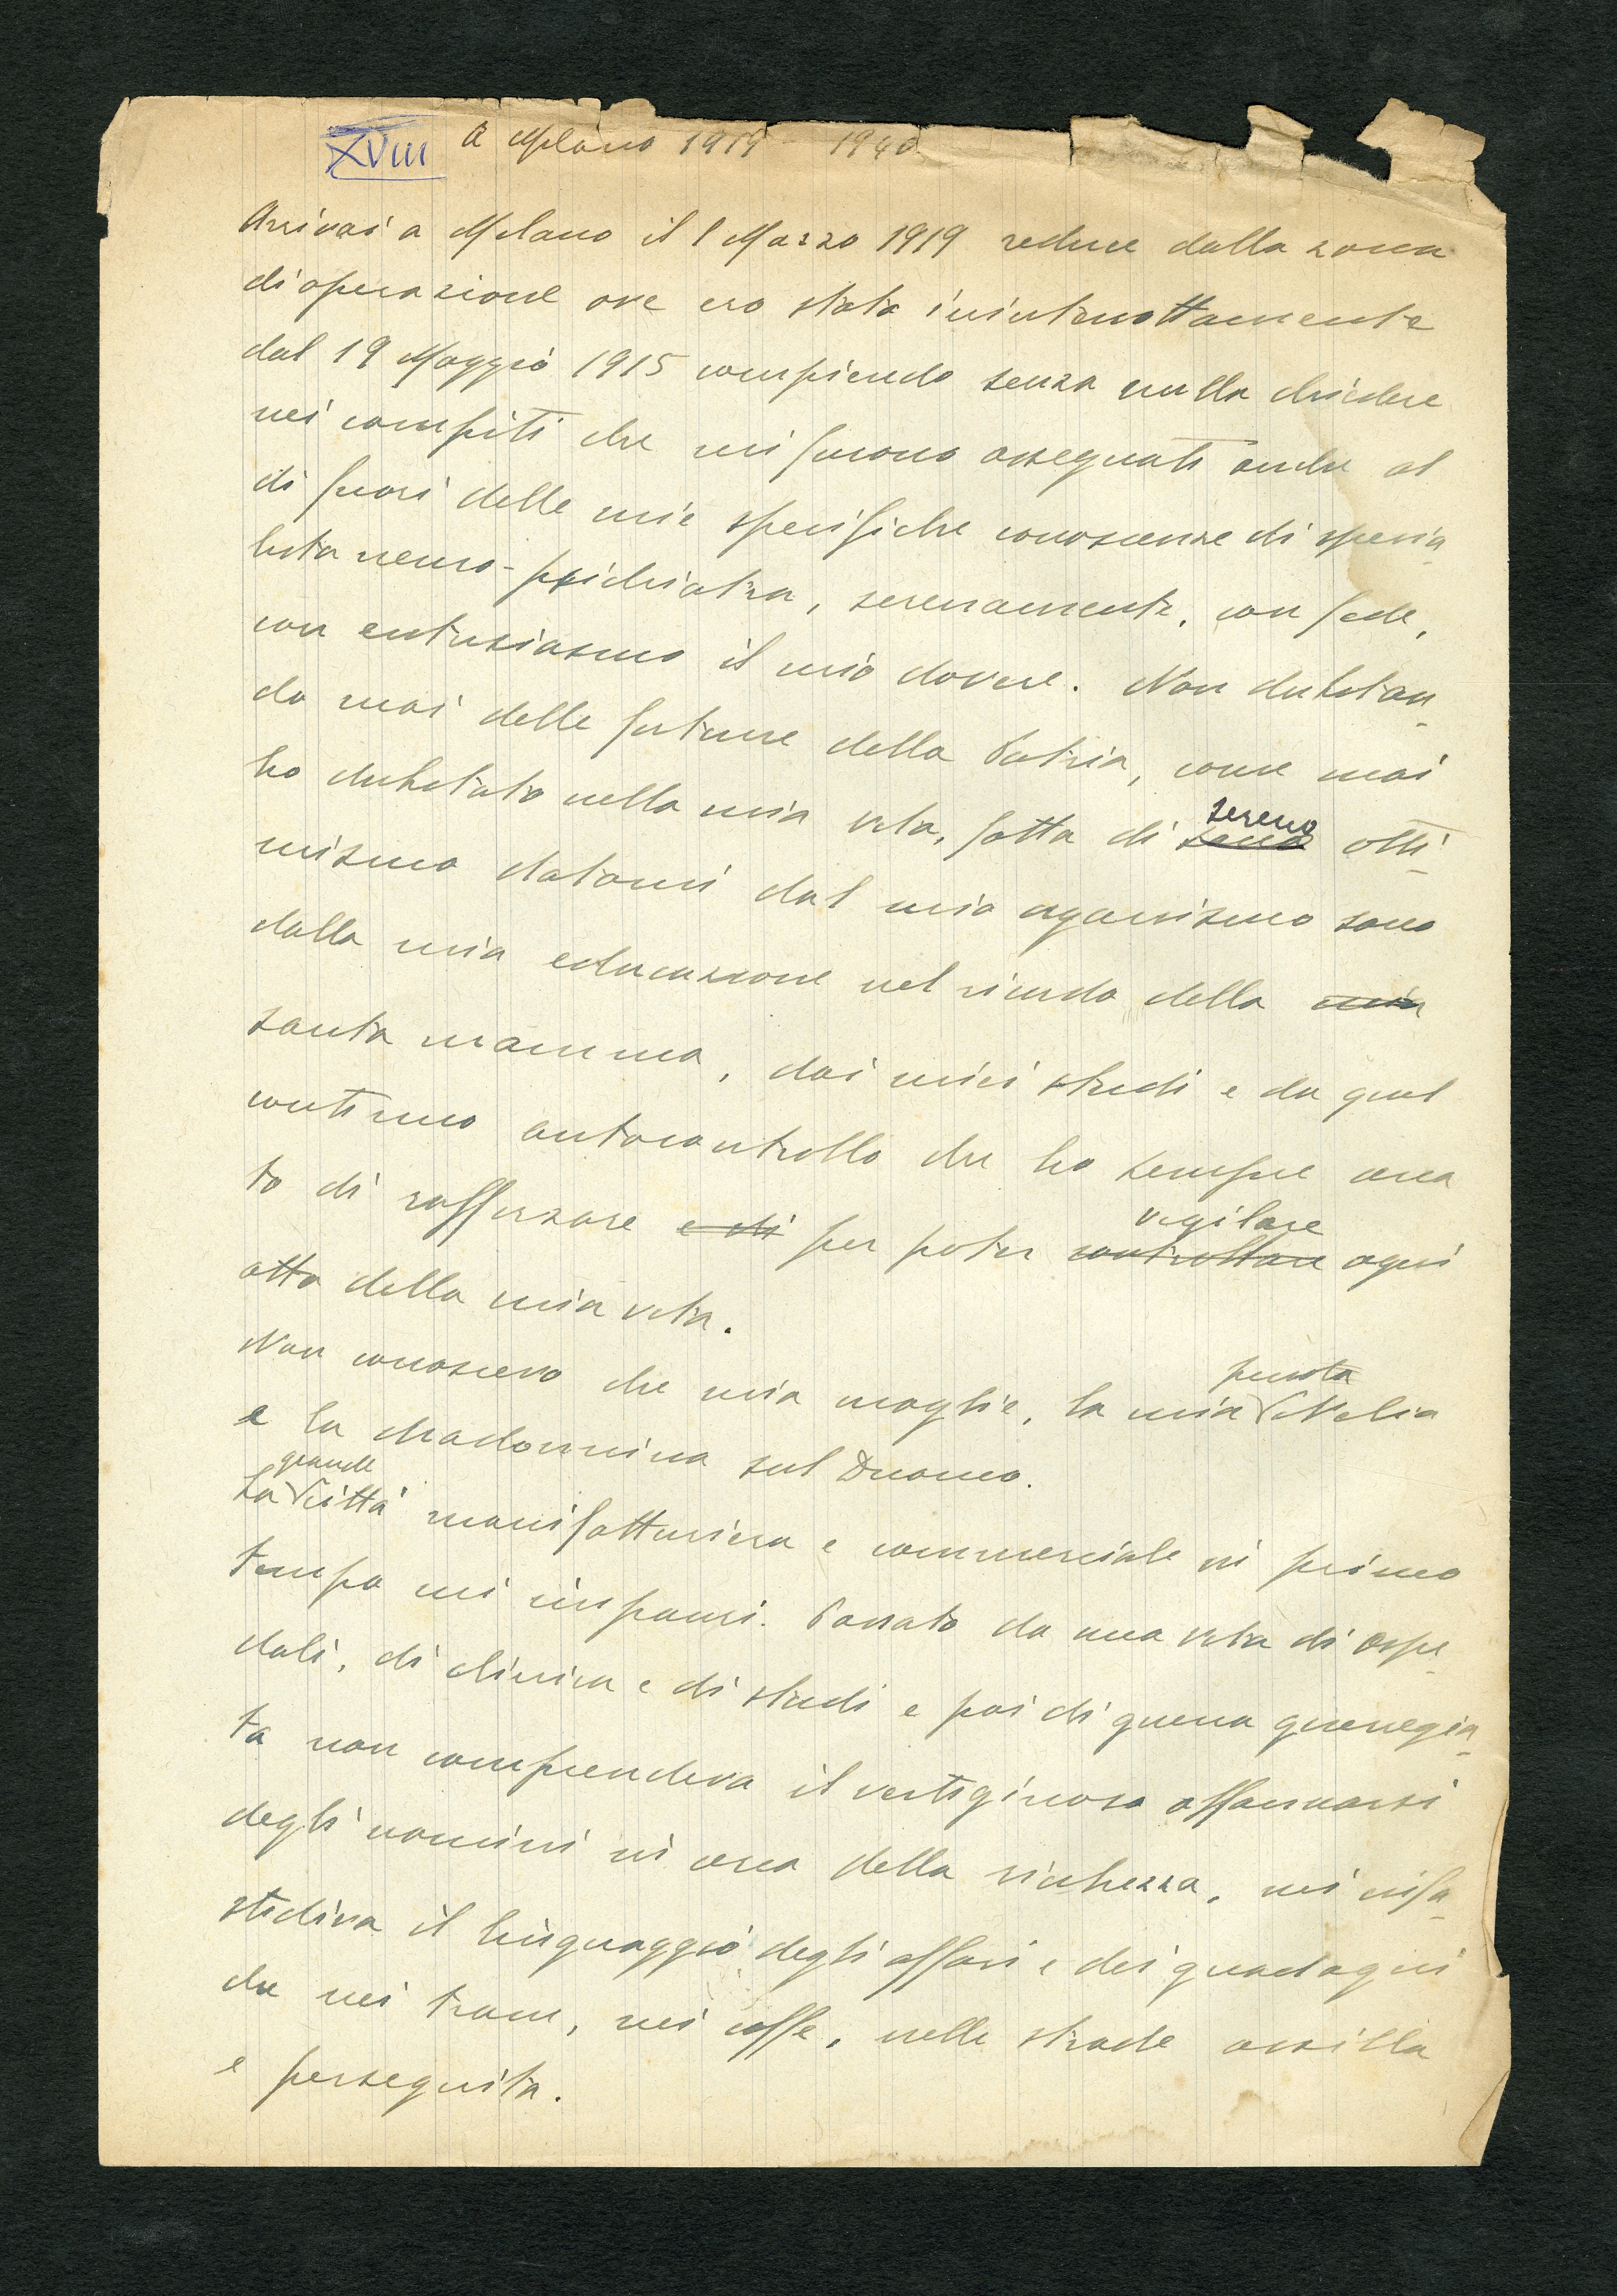 XVIII A Milano 1919 - 1940
Arrivai a Milano il 1 Marzo 1919 reduce dalla zona
di operazione ove ero stato ininterrottamente
dal 19 Maggio 1915 compiendo senza nulla chiedere
nei compiti che mi furono assegnati anche al
di fuori delle mie specifiche conoscenze di specia-
lista neuro-psichiatra, serenamente, con fede,
con entusiasmo il mio dovere. Non dubitan-
do mai delle fortune della Patria, come mai
ho dubitato nella mia vita, fatta di sereno otti-
mismo datomi dal mio organismo sano
dalla mia educazione nel ricordo della mia
santa mamma, dai miei studi e da quel
continuo autocontrollo che ho sempre cerca
to di rafforzare e di per poter controllare vigilare ogni
atto della mia vita.
Non conoscevo che mia moglie, la mia piccola Velia
e la Madonnina sul Duomo.
La grande città manifatturiera e commerciale in primo
tempo mi impaurì. Passato da una vita di ospe-
dali, di clinica e di studi e poi di guerra guerregia-
ta non comprendevo il vertiginoso affannarsi
degli uomini in cerca della ricchezza, mi infa-
stidiva il linguaggio degli affari e dei guadagni
che nei tram, nei caffe, nelle strade assilla
e perseguita.